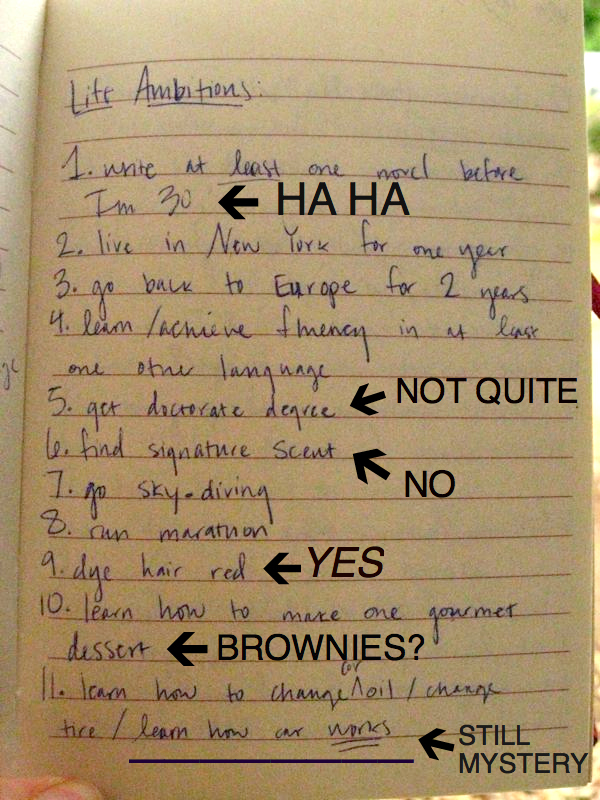 Life Ambitions:
1. write at least one novel before
I'm 30 ← HA HA
2. live in New York for one year
3. go back to Europe for 2 years
4. learn/achieve fluency in at least
one other language
5. get doctorate degree ← NOT QUITE
6. find signature scent ← NO
7. go sky-diving
8. run marathon
9. dye hair red ← YES
10. learn how to make one gourmet
dessert ← BROWNIES?
11. learn how to change car oil / change
tire / learn how car works ← STILL
MYSTERY